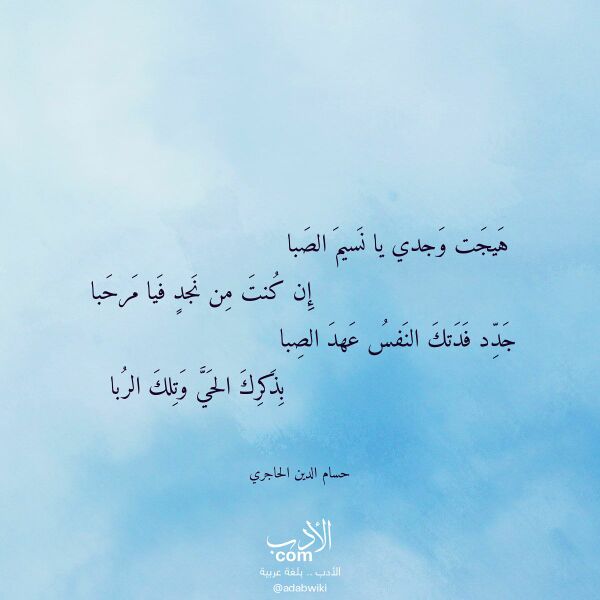 هَيَجَت وَجدي يا نَسيمَ الصَبا
إِن كُنتَ مِن نَجدٍ فَيا مَرحَبا
جَدِّد فَدَتكَ النَفسُ عَهدَ الصِبا
بِذِكرِكَ الحَيَّ وَتِلكَ الرُبا
حسام الدين الحاجري
الأدب
com
الأدب .. بلغة عربية
@adabwiki